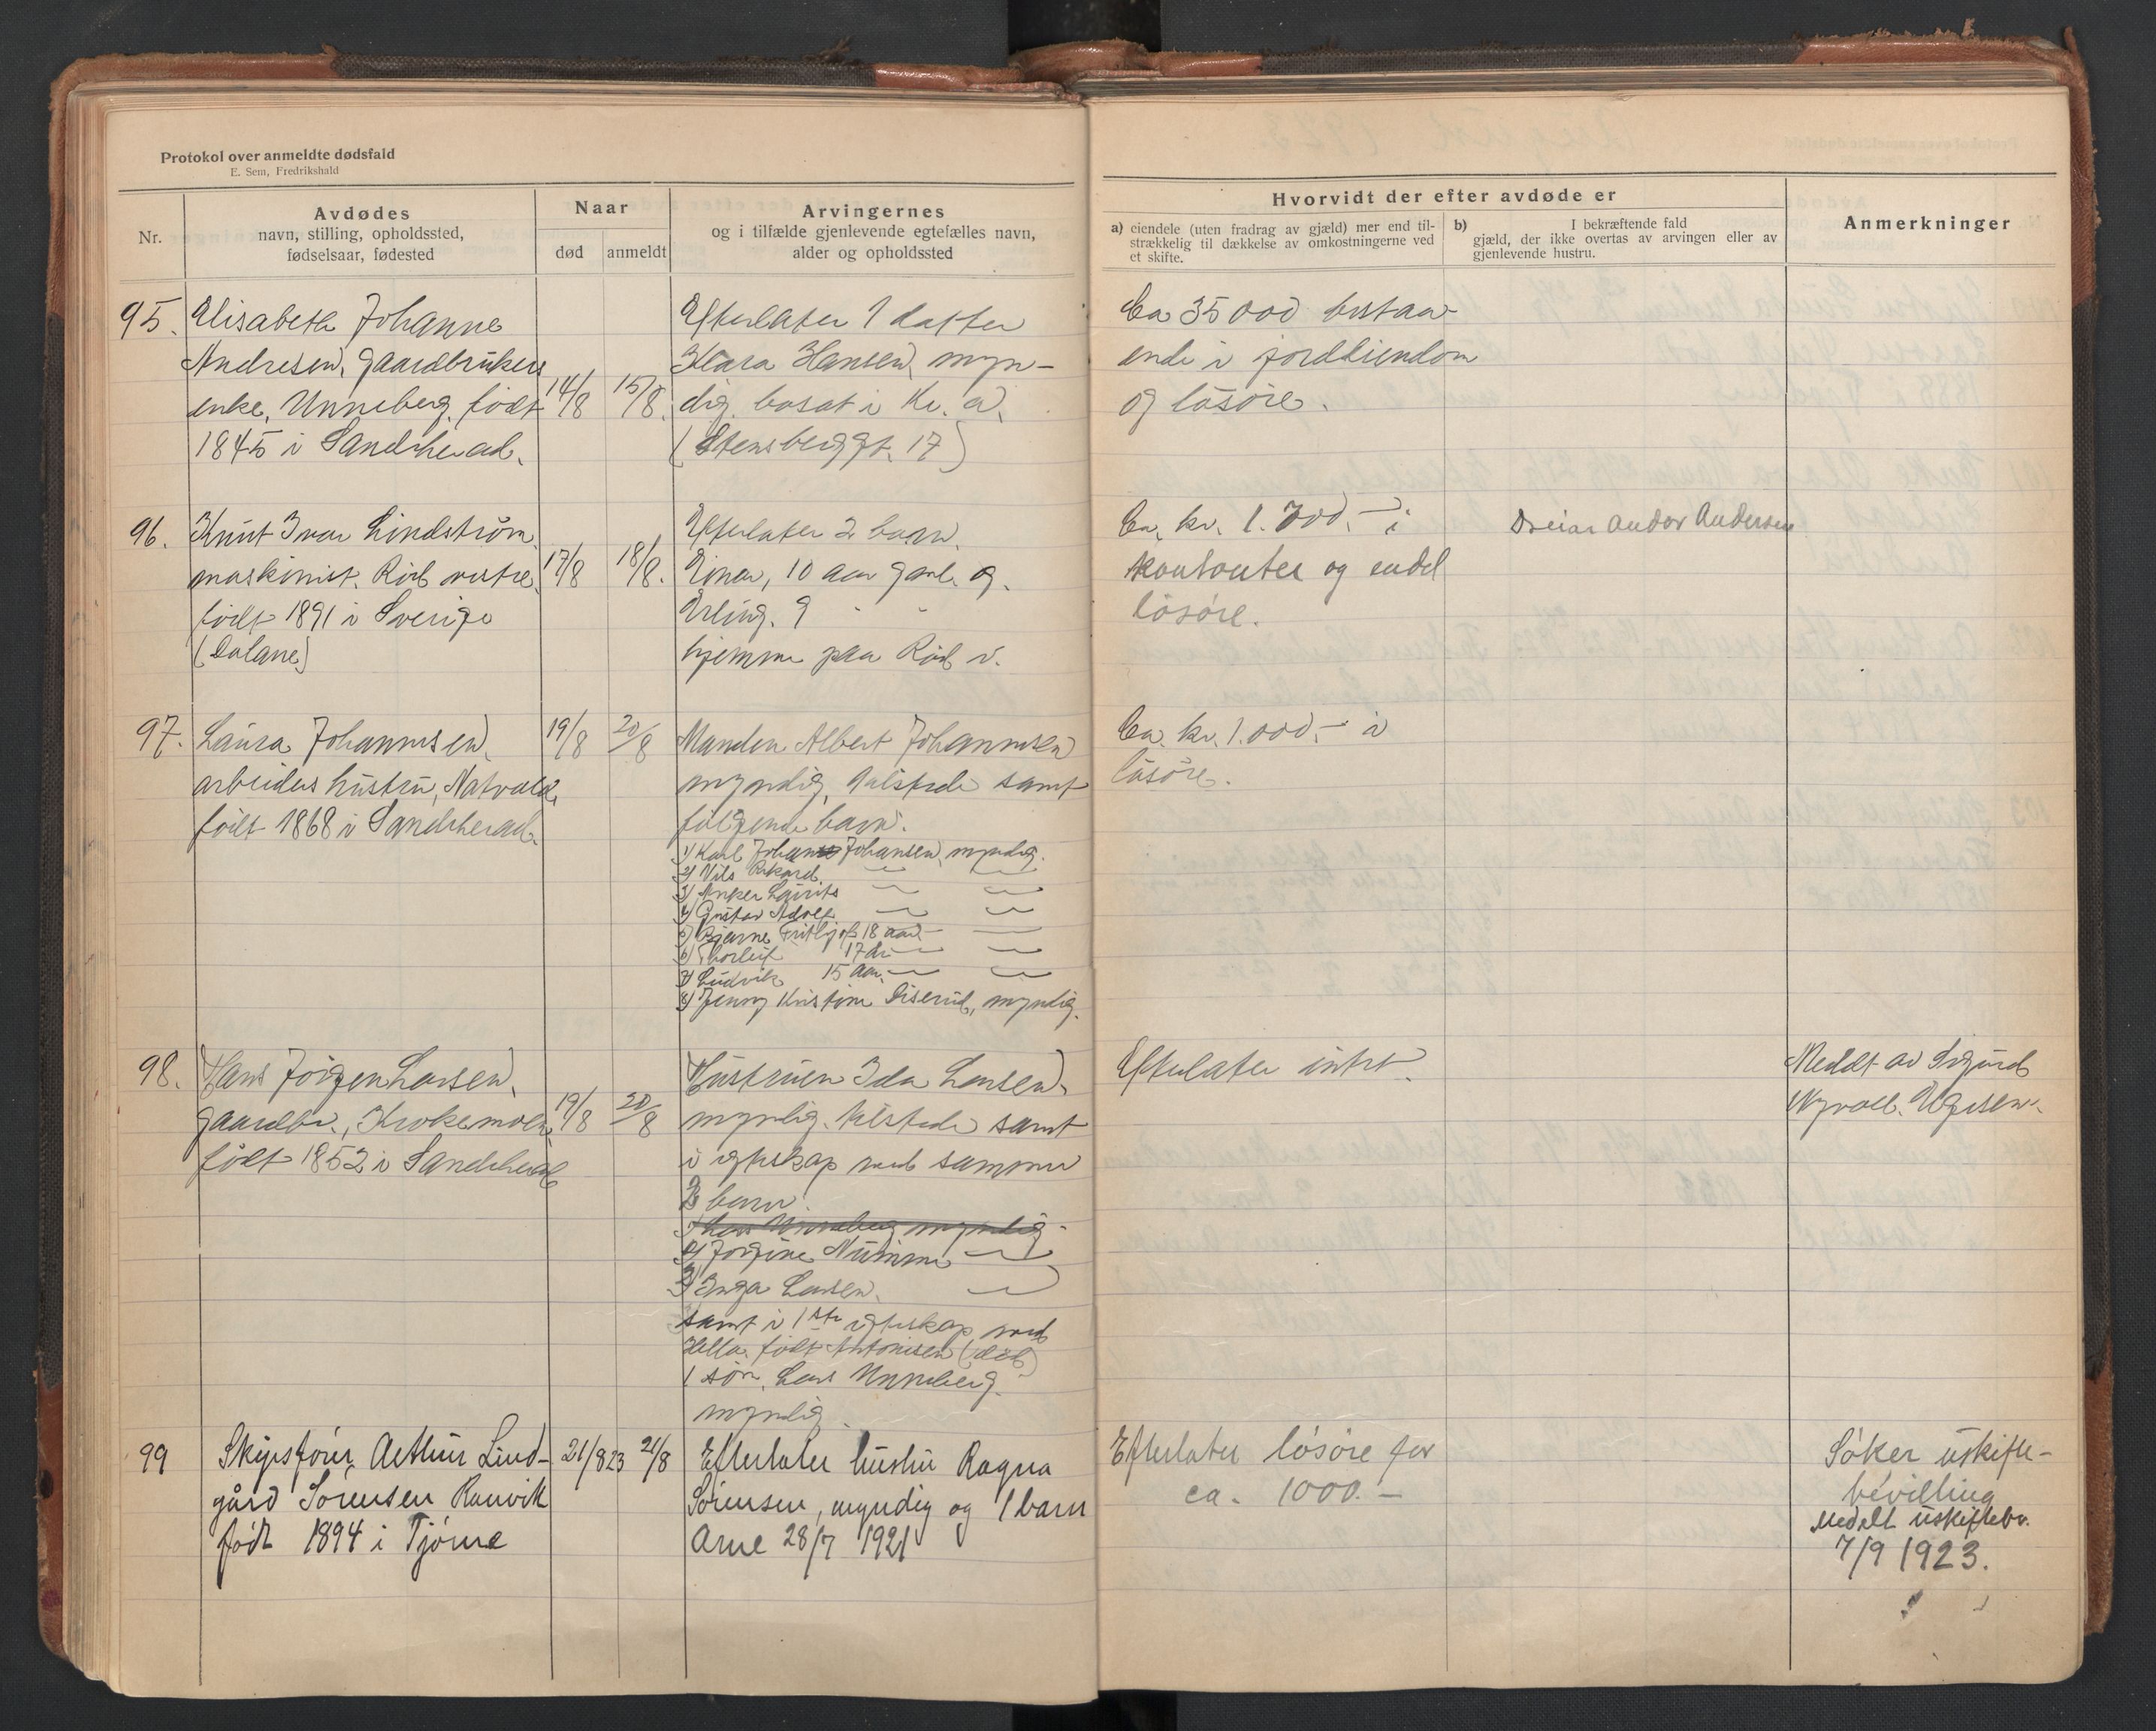 Protokol over anmeldte dødsfald
E. Sem, Fredrikshald
Nr.
Avdødes
navn, stilling, opholdssted,
fødselsaar, fødested
Naar
død
anmeldt
Arvingernes
og i tilfælde gjenlevende egtefælles navn,
alder og opholdssted
Hvorvidt der efter avdøde er
a) eiendele (uten fradrag av gjæld) mer end til-
strækkelig til dækkelse av omkostningerne ved
et skifte.
b) I bekræftende fald
gjæld, der ikke overtas av arvingen eller av
gjenlevende hustru.
Anmerkninger
95.
Elisabeth Johanne
Andresen, gaardbrukers
enke, Unneberg, født
1845 i Sandeherad.
14/8
15/8.
Efterlater 1 datter
Klara Hansen, myn-
dig, bosat i Kr. a.
(Stensberggt. 17)
Ca 35000 bestaa-
ende i jordeiendom
og løsøre.
96.
Knut Ivar Lindstrøm
maskinist. Rød vestre
født 1891 i Sverige
(Dalane)
17/8
18/8.
Efterlater 2 barn.
Einar, 10 aar gml. og
Erling. 9 " "
hjemme paa Rød v.
Ca. kr. 1.700.- i
kontanter og endel
løsøre.
Dreiar Andor Andersen
97.
Laura Johannesen,
arbeiders hustru, Natvald,
født 1868 i Sandeherad.
19/8
20/8
Manden Albert Johannesen
myndig, talstede samt
følgende barn:
1) Karl Johan Johansen, myndig.
2) Nils Rikard
3) Anker Laurits
4) Gustav Adolf
5) Bjarne Fritjof 18 aar
6) Thorleif 17 aar
7) Ludvik 15 aar
8) Jenny Kristine Diserud, myndig.
Ca. kr. 1.000.- i
løsøre.
98.
Hans Jørgen Larsen,
gaardbr., Krokemoen
født 1852 i Sandeherad
19/8
20/8
Hustruen Ida Larsen,
myndig. talstede samt
i egteskap med samme
2 barn:
1) Lars Unneberg myndig
2) Jørgine Numme
3) Inga Larsen.
samt i 1ste egteskap med
Hella født Antonisen (død)
1 søn, Lars Unneberg.
myndig.
Efterlater intet.
Meddt av Sigurd
Nyvoll.
99
Skipsfører Arthur Lind-
gård Sørensen Ranvik
født 1894 i Tjøme
21/8 23
21/8
Efterlater hustru Ragna
Sørensen, myndig og 1 barn
Arne 28/7 1921
Efterlater løsøre for
ca. 1000.-
Søker uskifte-
bevilling
Meddelt uskiftebv.
7/9 1923.